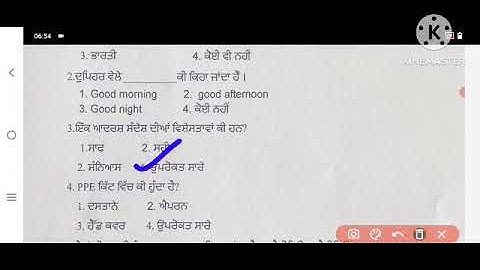 06:54
KINEMASTER
3. ਭਾਰਤੀ 4. ਕੋਈ ਵੀ ਨਹੀਂ
2.ਦੁਪਿਹਰ ਵੇਲੇ __________ ਕੀ ਕਿਹਾ ਜਾਂਦਾ ਹੈ ।
1. Good morning 2. good afternoon
3. Good night 4. ਕੋਈ ਨਹੀਂ
3.ਇੱਕ ਆਦਰਸ਼ ਸੰਦੇਸ਼ ਦੀਆਂ ਵਿਸ਼ੇਸਤਾਵਾਂ ਕੀ ਹਨ?
1.ਸਾਫ 2. ਸਹੀ
2. ਸੰਨਿਆਸ ਉਪਰੋਕਤ ਸਾਰੇ
4. PPE ਕਿੱਟ ਵਿੱਚ ਕੀ ਹੁੰਦਾ ਹੈ?
1. ਦਸਤਾਨੇ 2. ਐਪਰਨ
3. ਹੈੱਡ ਕਵਰ 4. ਉਪਰੋਕਤ ਸਾਰੇ